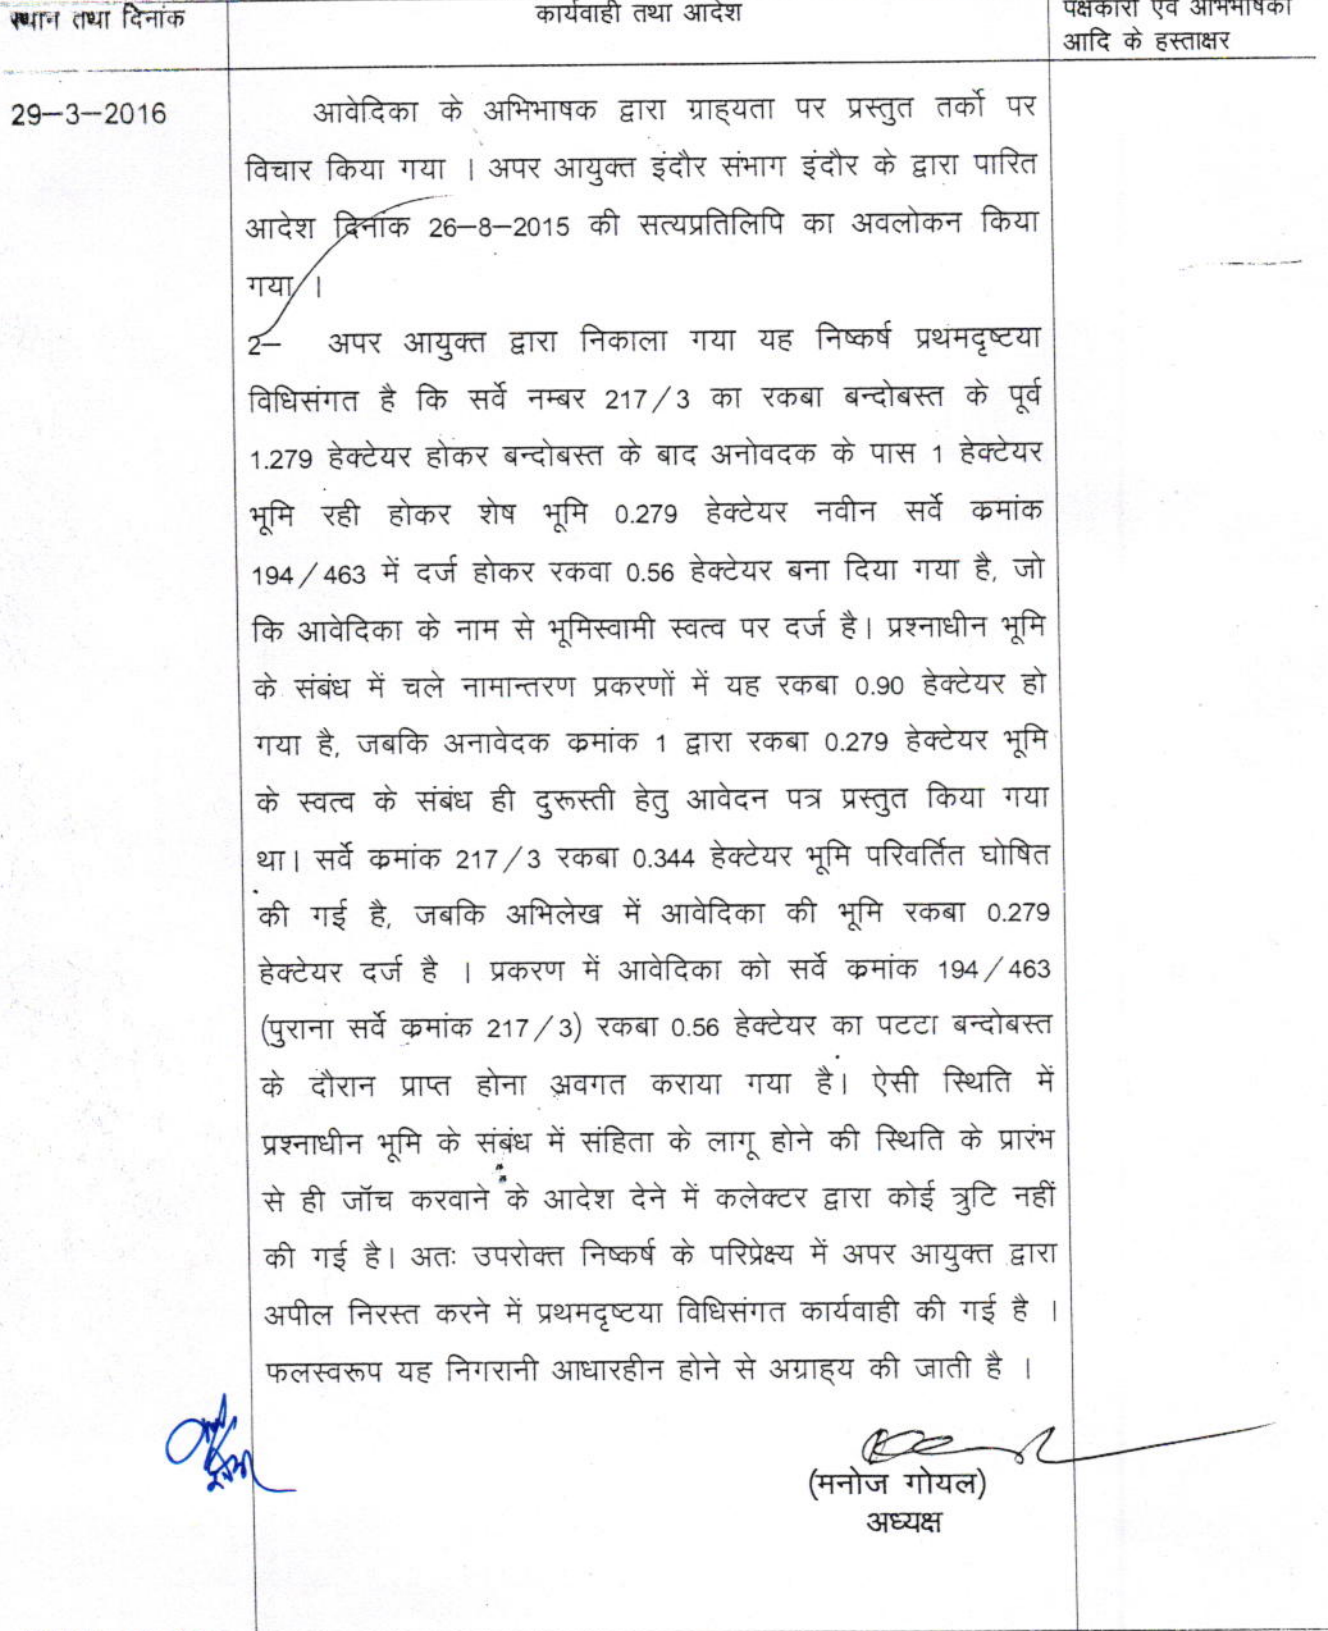 स्थान तथा दिनांक
कार्यवाही तथा आदेश
पक्षकारों एवं अभिभाषकों
आदि के हस्ताक्षर
29–3–2016
आवेदिका के अभिभाषक द्वारा ग्राह्यता पर प्रस्तुत तर्को पर
विचार किया गया । अपर आयुक्त इंदौर संभाग इंदौर के द्वारा पारित
आदेश दिनांक 26–8–2015 की सत्यप्रतिलिपि का अवलोकन किया
गया ।
2– अपर आयुक्त द्वारा निकाला गया यह निष्कर्ष प्रथमदृष्टया
विधिसंगत है कि सर्वे नम्बर 217/3 का रकबा बन्दोबस्त के पूर्व
1.279 हेक्टेयर होकर बन्दोबस्त के बाद अनोवदक के पास 1 हेक्टेयर
भूमि रही होकर शेष भूमि 0.279 हेक्टेयर नवीन सर्वे क्रमांक
194/463 में दर्ज होकर रकवा 0.56 हेक्टेयर बना दिया गया है, जो
कि आवेदिका के नाम से भूमिस्वामी स्वत्व पर दर्ज है। प्रश्नाधीन भूमि
के संबंध में चले नामान्तरण प्रकरणों में यह रकबा 0.90 हेक्टेयर हो
गया है, जबकि अनावेदक क्रमांक 1 द्वारा रकबा 0.279 हेक्टेयर भूमि
के स्वत्व के संबंध ही दुरूस्ती हेतु आवेदन पत्र प्रस्तुत किया गया
था। सर्वे क्रमांक 217/3 रकबा 0.344 हेक्टेयर भूमि परिवर्तित घोषित
की गई है, जबकि अभिलेख में आवेदिका की भूमि रकबा 0.279
हेक्टेयर दर्ज है । प्रकरण में आवेदिका को सर्वे क्रमांक 194/463
(पुराना सर्वे क्रमांक 217/3) रकबा 0.56 हेक्टेयर का पटटा बन्दोबस्त
के दौरान प्राप्त होना अवगत कराया गया है। ऐसी स्थिति में
प्रश्नाधीन भूमि के संबंध में संहिता के लागू होने की स्थिति के प्रारंभ
से ही जॉच करवाने के आदेश देने में कलेक्टर द्वारा कोई त्रुटि नहीं
की गई है। अतः उपरोक्त निष्कर्ष के परिप्रेक्ष्य में अपर आयुक्त द्वारा
अपील निरस्त करने में प्रथमदृष्टया विधिसंगत कार्यवाही की गई है ।
फलस्वरूप यह निगरानी आधारहीन होने से अग्राह्य की जाती है ।
(मनोज गोयल)
अध्यक्ष